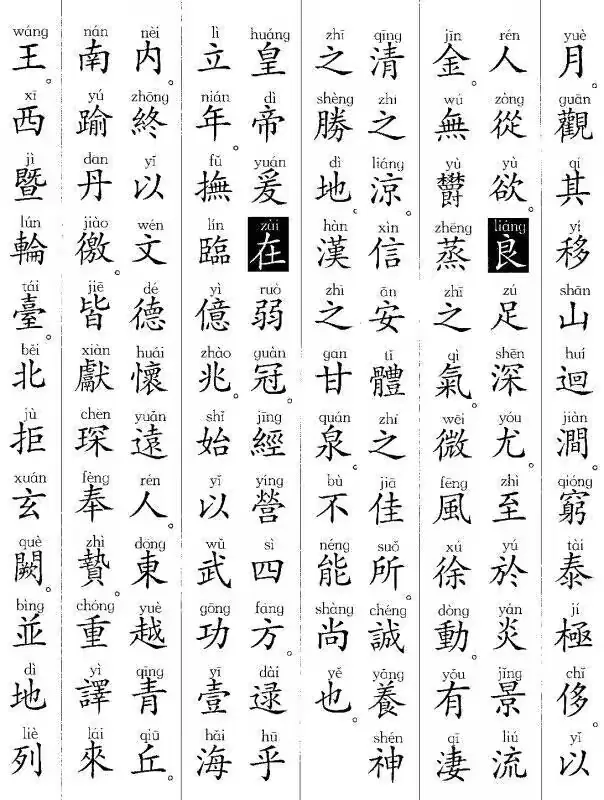 yuè 月。 guān 觀 qí 其 yí 移 shān 山 huí 迴 jiàn 澗 qióng 窮 tài 泰 jí 極 chǐ 侈。 yǐ 以
rén 人 zòng 從 yù 欲 liáng 良 zú 足 shēn 深 yóu 尤。 zhì 至 yú 於 yán 炎 jǐng 景 liú 流
jīn 金。 wú 無 yù 欝 zhēng 蒸 zhī 之 qì 氣。 wēi 微 fēng 風 xú 徐 dòng 動。 yǒu 有 qī 淒
qīng 清 zhī 之 liáng 涼。 xìn 信 ān 安 tǐ 體 zhī 之 jiā 佳 suǒ 所。 chéng 誠 yǎng 養 shén 神
zhī 之 shèng 勝 dì 地。 hàn 漢 zhī 之 gān 甘 quán 泉。 bù 不 néng 能 shàng 尚 yě 也。
huáng 皇 dì 帝 yuán 爰 zài 在 ruò 弱 guàn 冠。 jīng 經 yíng 營 sì 四 fāng 方。 dài 逮 hū 乎
lì 立 nián 年。 fǔ 撫 lín 臨 yì 億 zhào 兆。 shǐ 始 yǐ 以 wǔ 武 gōng 功 yī 壹 hǎi 海
nèi 内。 zhōng 終 yǐ 以 wén 文 dé 德 huái 懷 yuǎn 遠 rén 人。 dōng 東 yuè 越 qīng 青 qiū 丘。
nán 南 yú 踰 dān 丹 jiào 徼。 jiē 皆 xiàn 獻 chēn 琛 fèng 奉 zhì 贄。 chóng 重 yì 譯 lái 來
wáng 王。 xī 西 jì 暨 lún 輪 tái 臺。 běi 北 jù 拒 xuán 玄 què 闕。 bìng 並 dì 地 liè 列